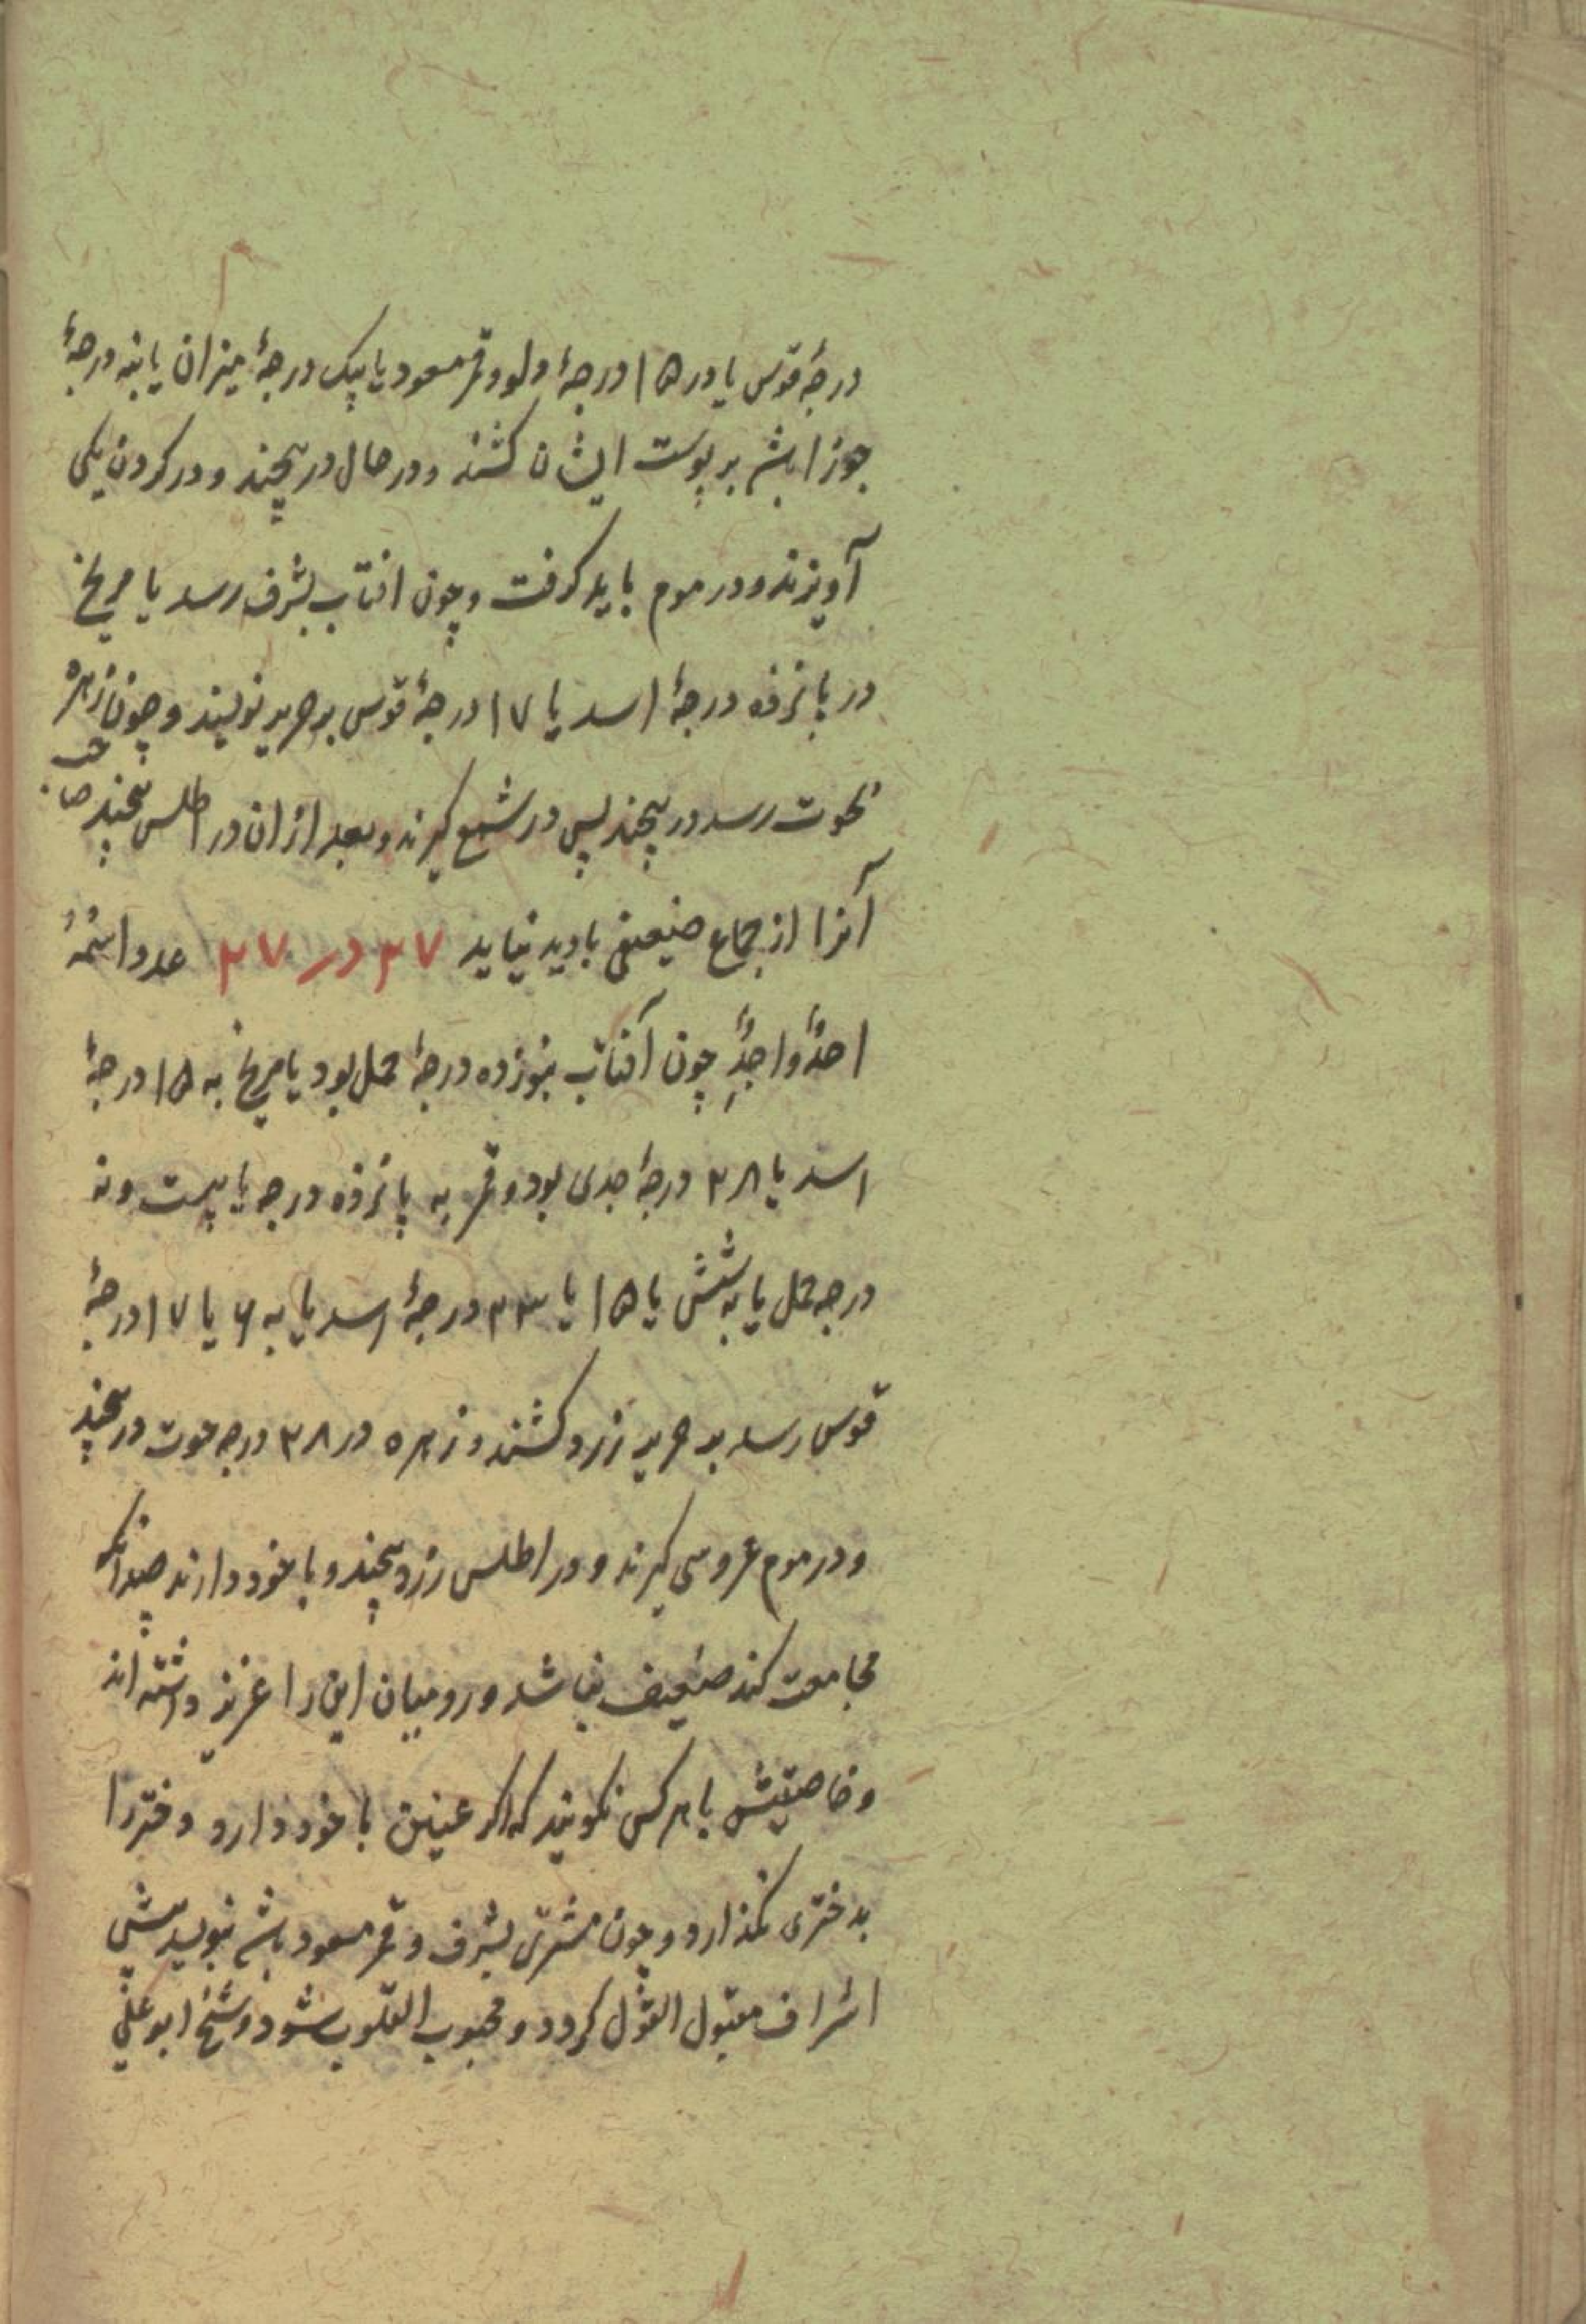 درجهٔ قوس یا در ۱۵ درجهٔ دلو و قمر مسعود یا بیک درجهٔ میزان یا بنه درجهٔ
جوزا باشد بر پوست ایشان کشند و در حال در پیچند و در کردن یکی
آویزند و در موم باید کرفت و چون افتاب بشرف رسد یا مریخ
در پانزده درجهٔ اسد یا ۱۷ درجهٔ قوس بر حریر نویسند و چون زهره
بحوت رسد در پیچند پس در شمع کیرند و بعد ازان در اطلس پیچند صاحب
آنرا از جماع ضعیفی بادید نیاید ۲۷ در ۲۷ عدد اسمهُ
احدٌ واحدٌ چون آفتاب بنوزده درجهٔ حمل بود یا مریخ به ۱۵ درجهٔ
اسد یا ۲۸ درجهٔ جدی بود و قمر به پانزده درجه یا بیست و نه
درجه حمل یا به شش یا ۱۵ یا ۲۳ درجهٔ اسد یا به ۶ یا ۱۷ درجهٔ
قوس رسد بر حریر زرد کشند و زهره در ۲۸ درجه حوت در پیچند
و در موم عروسی کیرند و در اطلس زرد پیچند و با خود دارند چندانکه
مجامعت کند ضعیف نباشد و رومیان این را عزیز داشته اند
و خاصیتش با هر کس نکویند که اکر عنین با خود دارد دختر را
بدختری نکذارد و چون مشتری بشرف و قمر مسعود باشد بنویسد پیش
اشراف مقبول القول کردد و محبوب القلوب شود و شیخ ابو علی